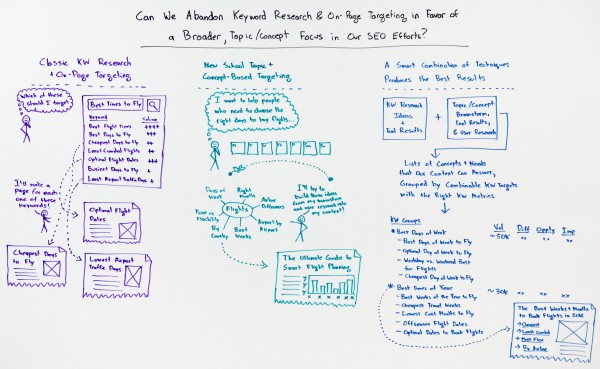 Can We Abandon Keyword Research & On-Page Targeting in Favor of
a Broader, Topic/Concept Focus in Our SEO Efforts?
Classic KW Research
+ On-Page Targeting
Which of these
should I target?
Best Times to Fly
Keyword Volume
Best Flight Times ++++
Best Days to Fly +++
Cheapest Days to Fly ++
Least Crowded Flights ++
Optimal Flight Dates +++
Busiest Days to Fly +
Lowest Airport Traffic Days +
I'll make a
page for each
one of these
keywords!
Optimal Flight
Dates
Cheapest Days
to Fly
Lowest Airport
Traffic Days
New School Topic +
Concept-Based Targeting
I want to help people
who need to choose the
right days to buy flights.
Days of
Week
Right
Months
Airline
Differences
Flights
Price vs
Flexibility
By
Country
Best
Weeks
Airport by
Airport
I'll try to
build these ideas
from my brainstorm
and user research into
my content!
The Ultimate Guide to
Smart Flight Planning
A Smart Combination of Techniques
Produces the Best Results
KW Research
Ideas
+
Tool Results
+
Topic/Concept
Brainstorm,
Tool Results,
& User Research
Lists of Concepts + Needs
that Our Content Can Answer,
Grouped by Combinable KW Targets
with the Right KW Metrics
KW Groups Vol Diff Oppty Imp
* Best Days of Week ~50K " " "
- Best Days of Week to Fly
- Optimal Day of Week to Fly
- Weekday vs. Weekend Best
for Flights
- Cheapest Day of Week to Fly
* Best Times of Year ~30K " " "
- Best Weeks of the Year to Fly
- Cheapest Travel Weeks
- Lowest Cost Months to Fly
- Offseason Flight Dates
- Optimal Dates to Book Flights
The Best Weeks + Months
to Book Flights in 2016
→ Cheapest
→ Least Crowded
→ Most Flex
→ By Airline